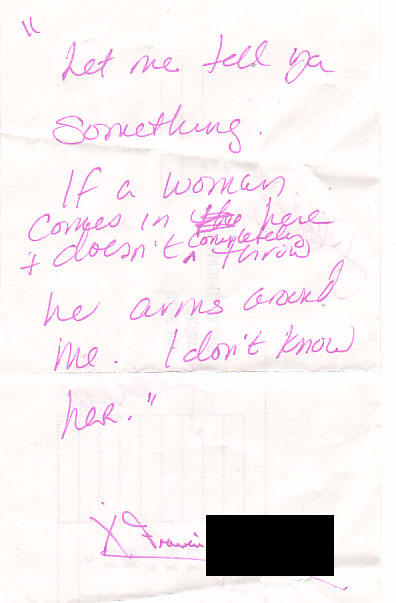 "
Let me tell ya
something.
If a woman
comes in here
+ doesn't completely throw
he arms around
me. I don't know
her."
X Francis